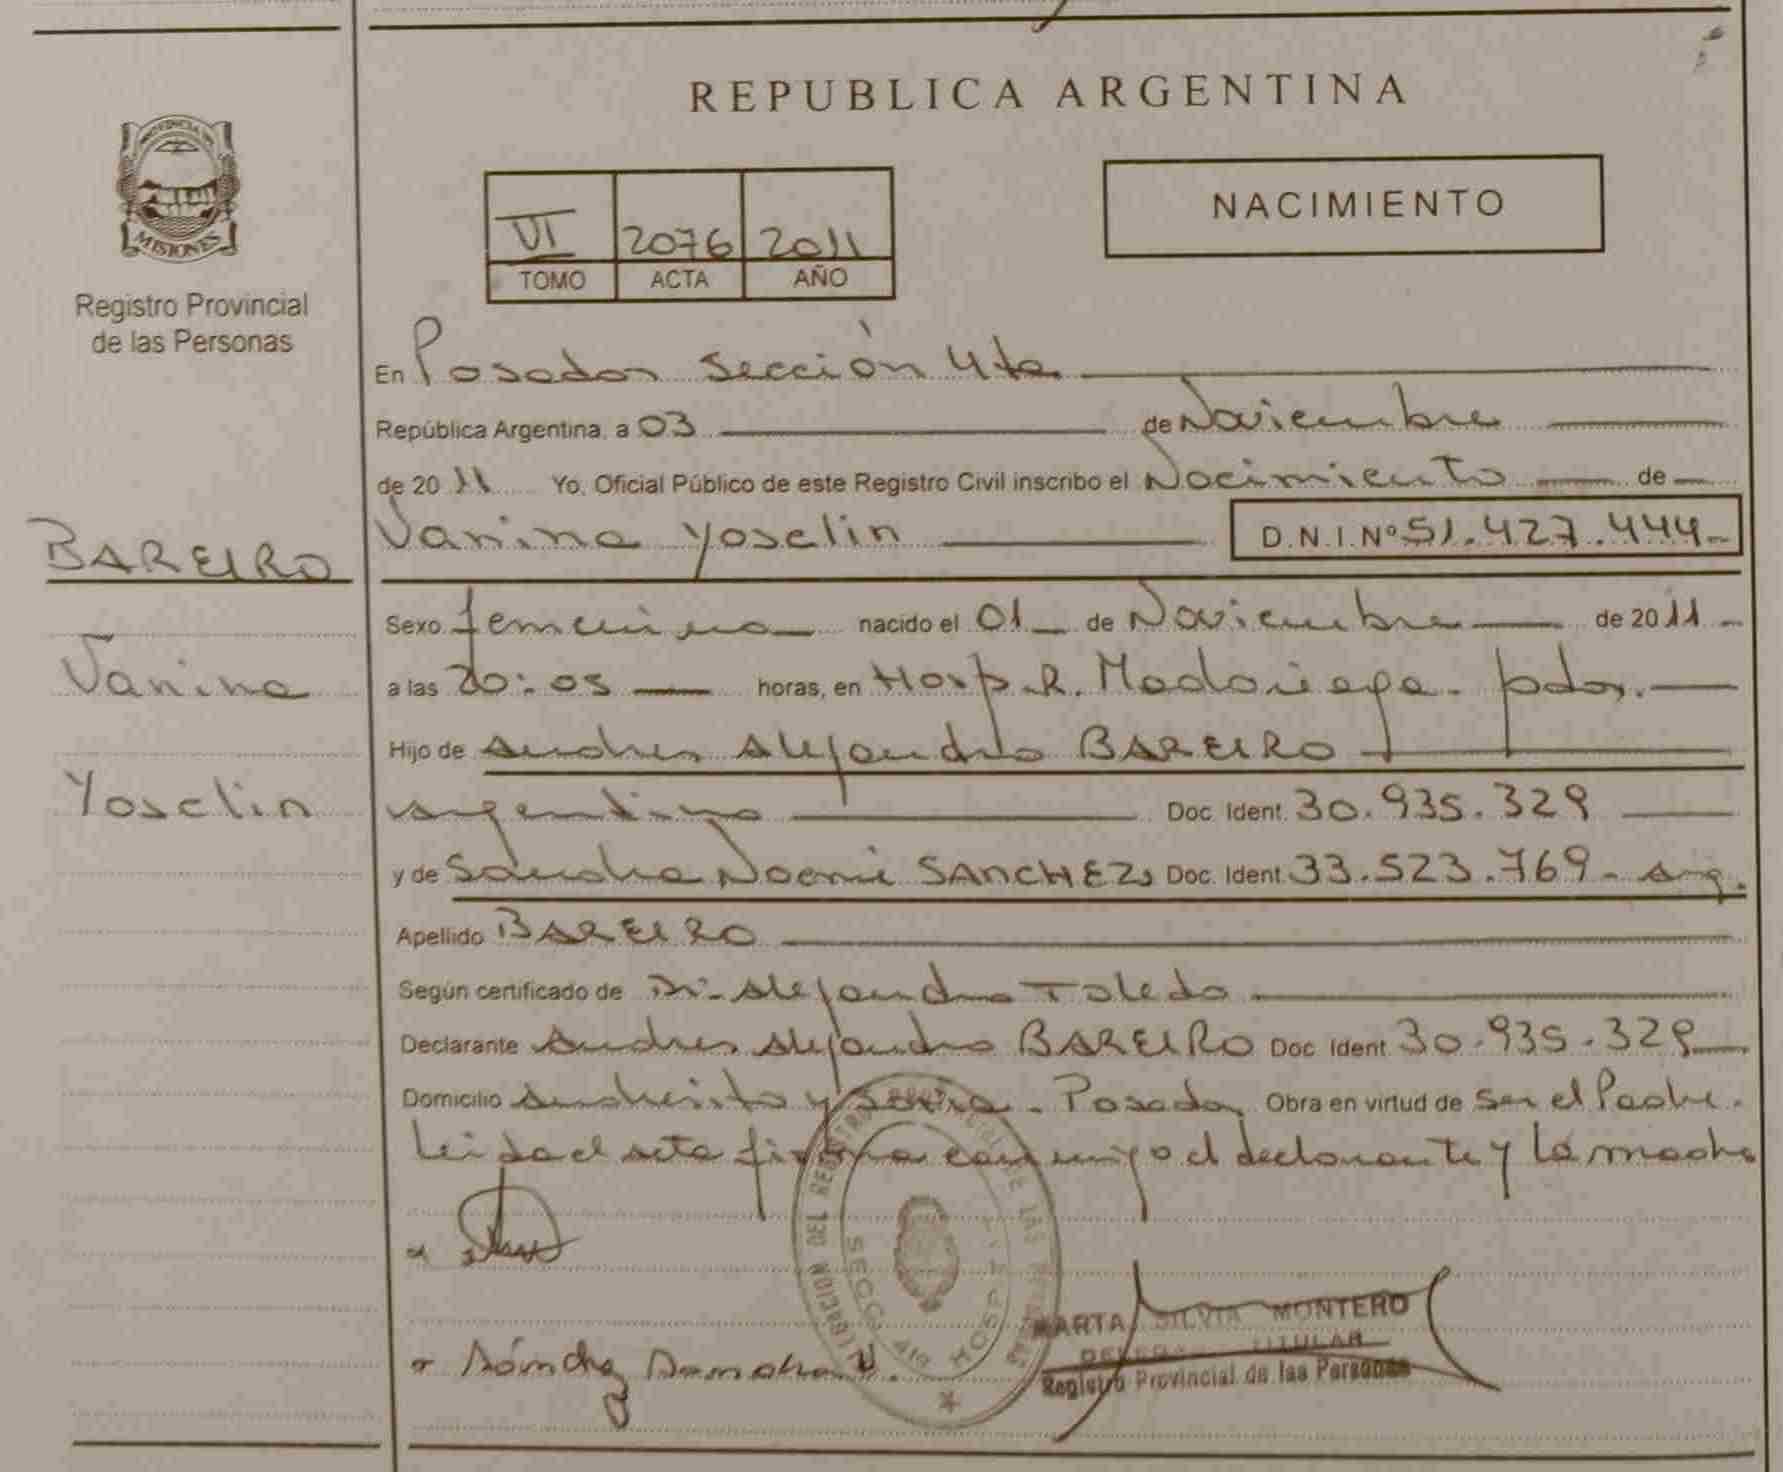 REPUBLICA ARGENTINA
PROVINCIA DE
MISIONES
Registro Provincial
de las Personas
VI 2076 2011
TOMO ACTA AÑO
NACIMIENTO
En Posadas sección 4ta
República Argentina, a 03 de Noviembre
de 2011 Yo, Oficial Público de este Registro Civil inscribo el Nacimiento de
Vanina Yoselin D.N.I.Nº 51.427.444
BAREIRO
Vanina
Yoselin
Sexo femenino nacido el 01 de Noviembre de 2011
a las 20:05 horas, en Hosp. R. Madariaga - pdas.
Hijo de Andres Alejandro BAREIRO
argentino Doc. Ident. 30.935.329
y de Sandra Noemi SANCHEZ Doc. Ident. 33.523.769 - arg.
Apellido BAREIRO
Según certificado de Dr. Alejandro Toledo
Declarante Andres Alejandro BAREIRO Doc. Ident. 30.935.329
Domicilio Andresito y - Posadas Obra en virtud de ser el Padre.
Leida el acta firma conmigo el declarante y la madre
Sánchez Sandra N.
DEL REGISTRO PROVINCIAL DE LAS PERSONAS
SECC. 4ta HOSPITAL
MARTA SILVIA MONTERO
TITULAR
Registro Provincial de las Personas